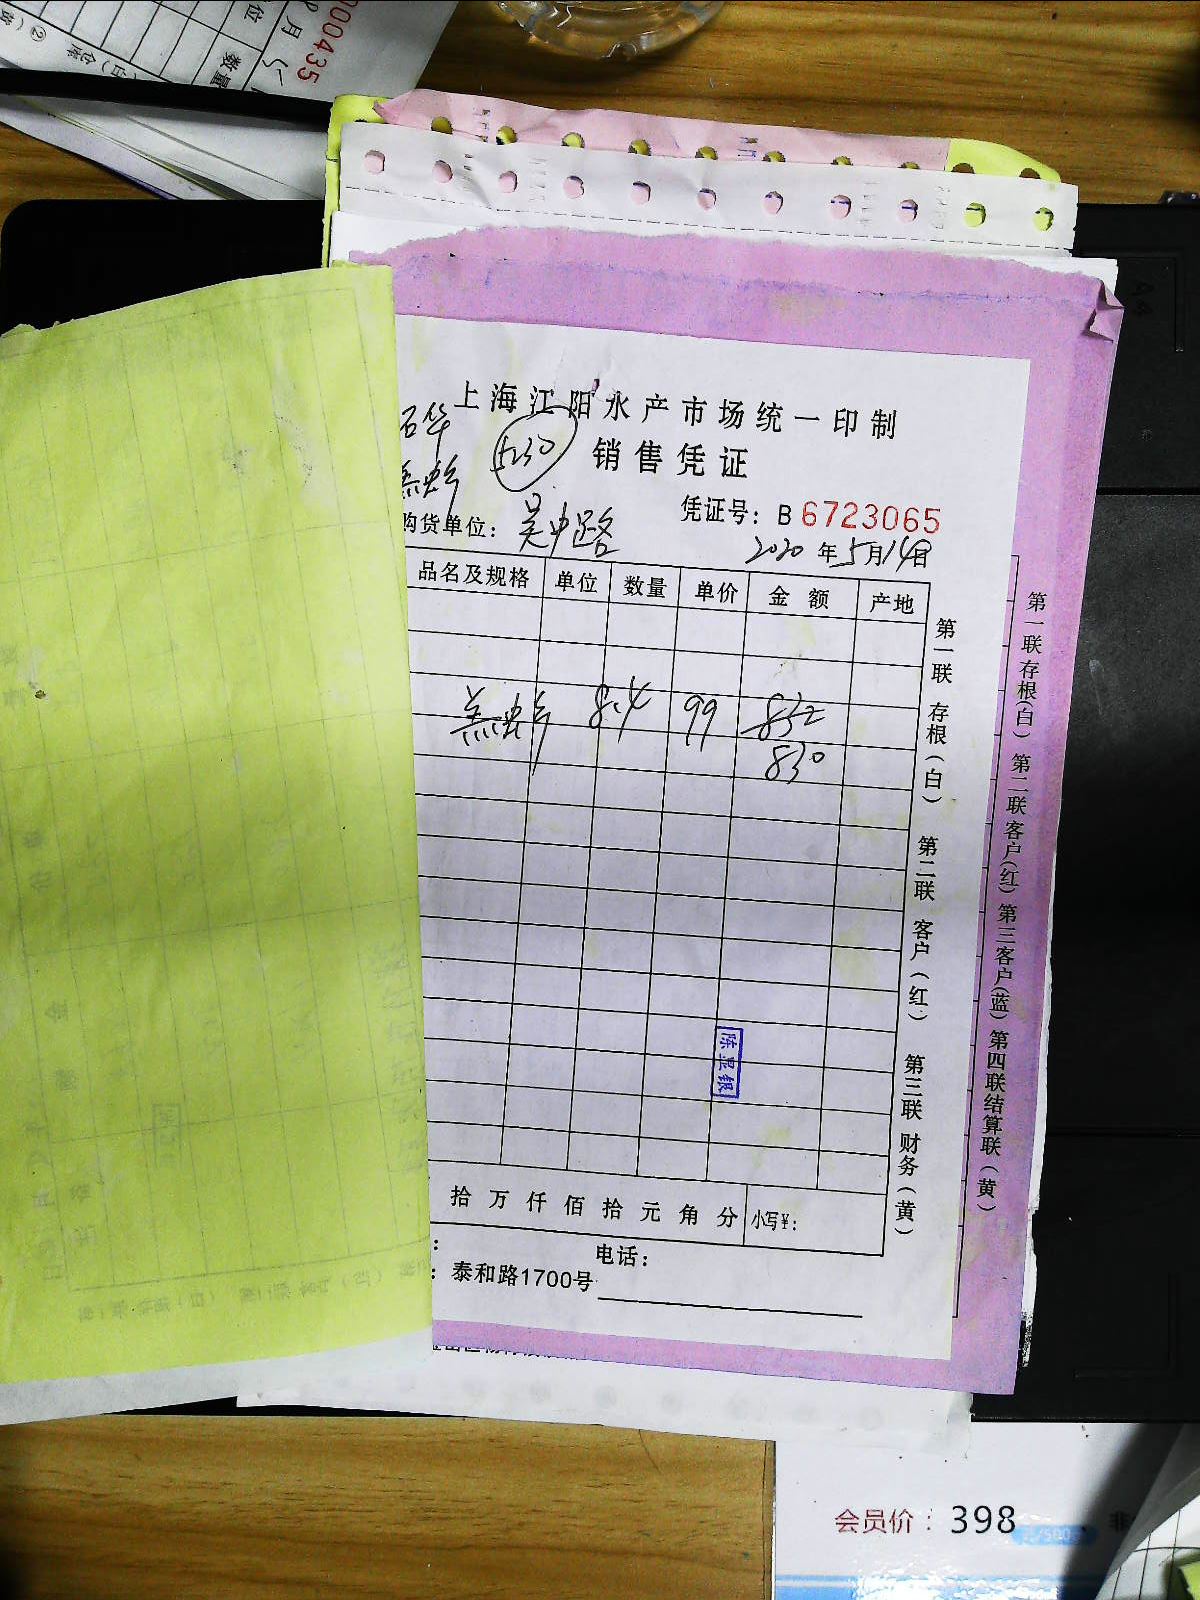 000435
月
位
数量
上海江阳水产市场统一印制
石华
5230
销售凭证
凭证号: B 6723065
购货单位: 吴中路
2020年5月14日
品名及规格 单位 数量 单价 金额 产地
8.4 99 832
830
陈显银
拾万仟佰拾元角分 小写¥:
电话:
泰和路1700号
第一联 存根(白) 第二联 客户(红) 第三联 财务(黄)
第一联存根(白) 第二联客户(红) 第三客户(蓝) 第四联结算联(黄)
会员价: 398
/500
非